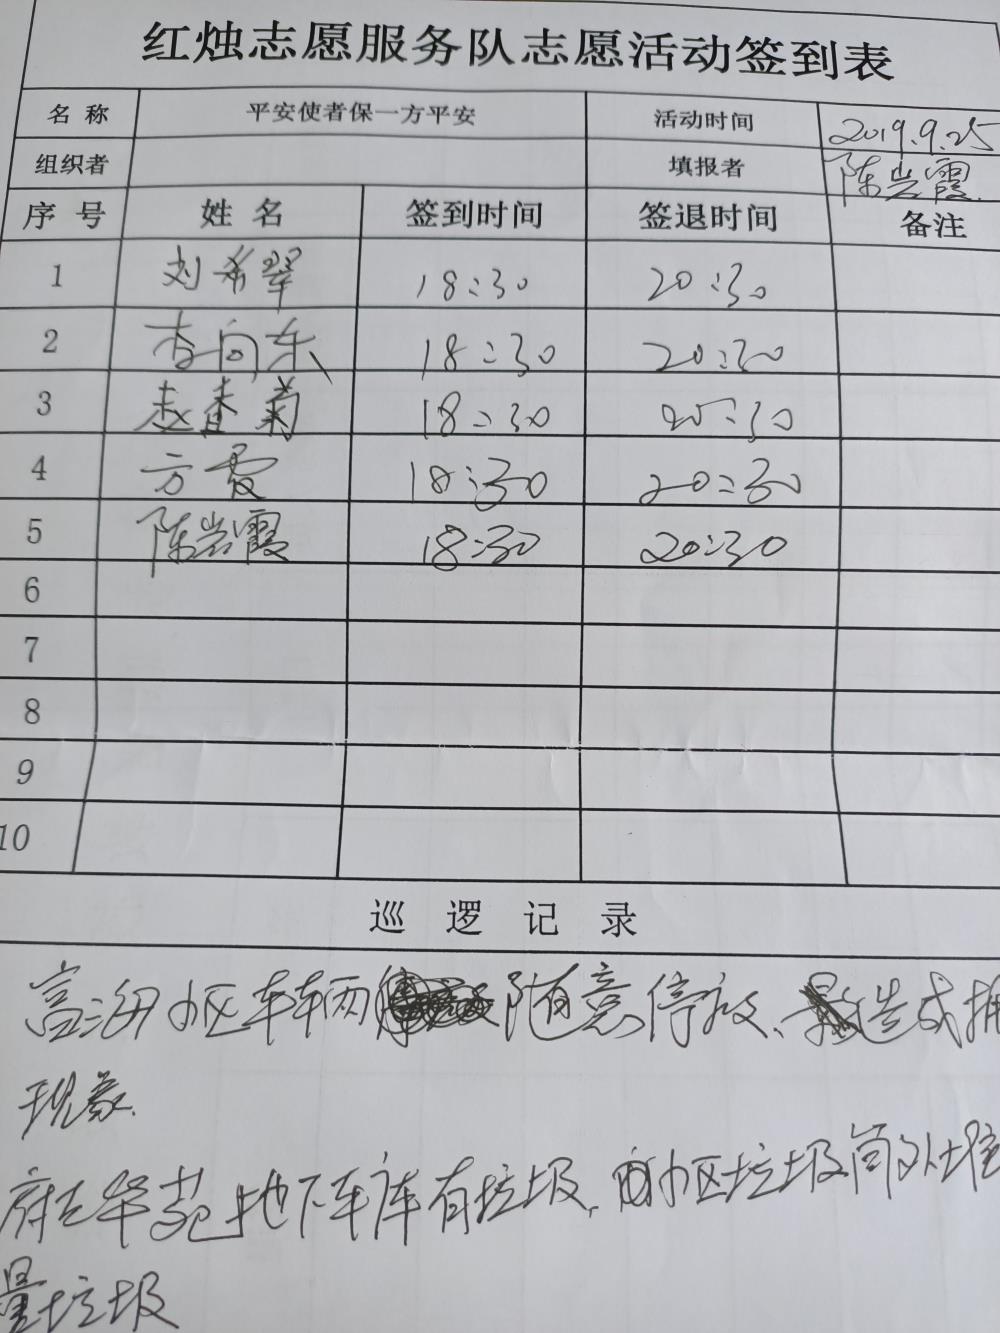 红烛志愿服务队志愿活动签到表
名称 平安使者保一方平安 活动时间 2019.9.25
组织者 填报者 陈岩霞
序号 姓名 签到时间 签退时间 备注
1 刘希翠 18:30 20:30
2 李向东 18:30 20:30
3 赵香菊 18:30 20:30
4 方霞 18:30 20:30
5 陈岩霞 18:30 20:30
6
7
8
9
10
巡逻记录
富海小区车辆随意停放、造成拥
现象.
府王华苑地下车库有垃圾, 小区垃圾筒外堆
量垃圾